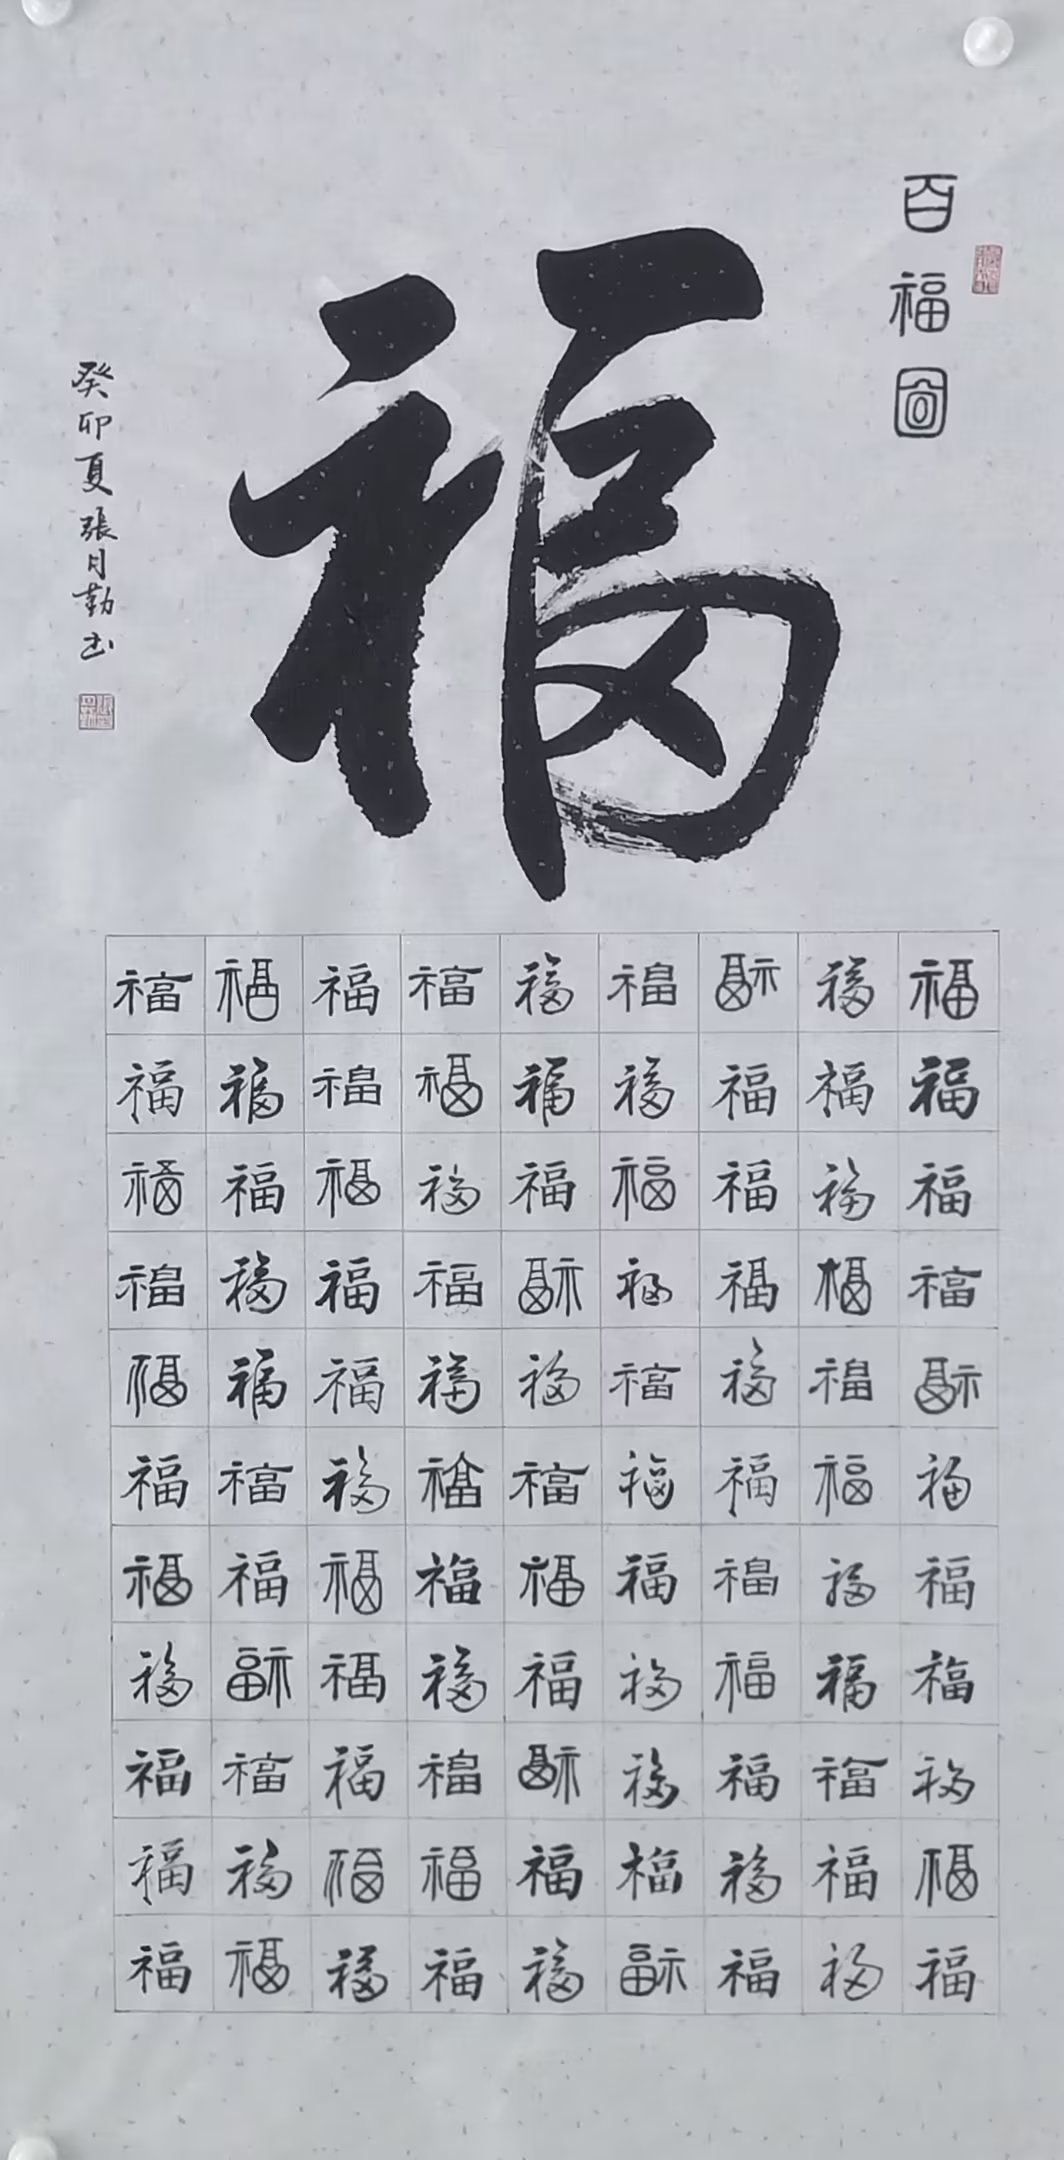 百福圖
福
癸卯夏張月勤书
福福福福福福福福福
福福福福福福福福福
福福福福福福福福福
福福福福福福福福福
福福福福福福福福福
福福福福福福福福福
福福福福福福福福福
福福福福福福福福福
福福福福福福福福福
福福福福福福福福福
福福福福福福福福福